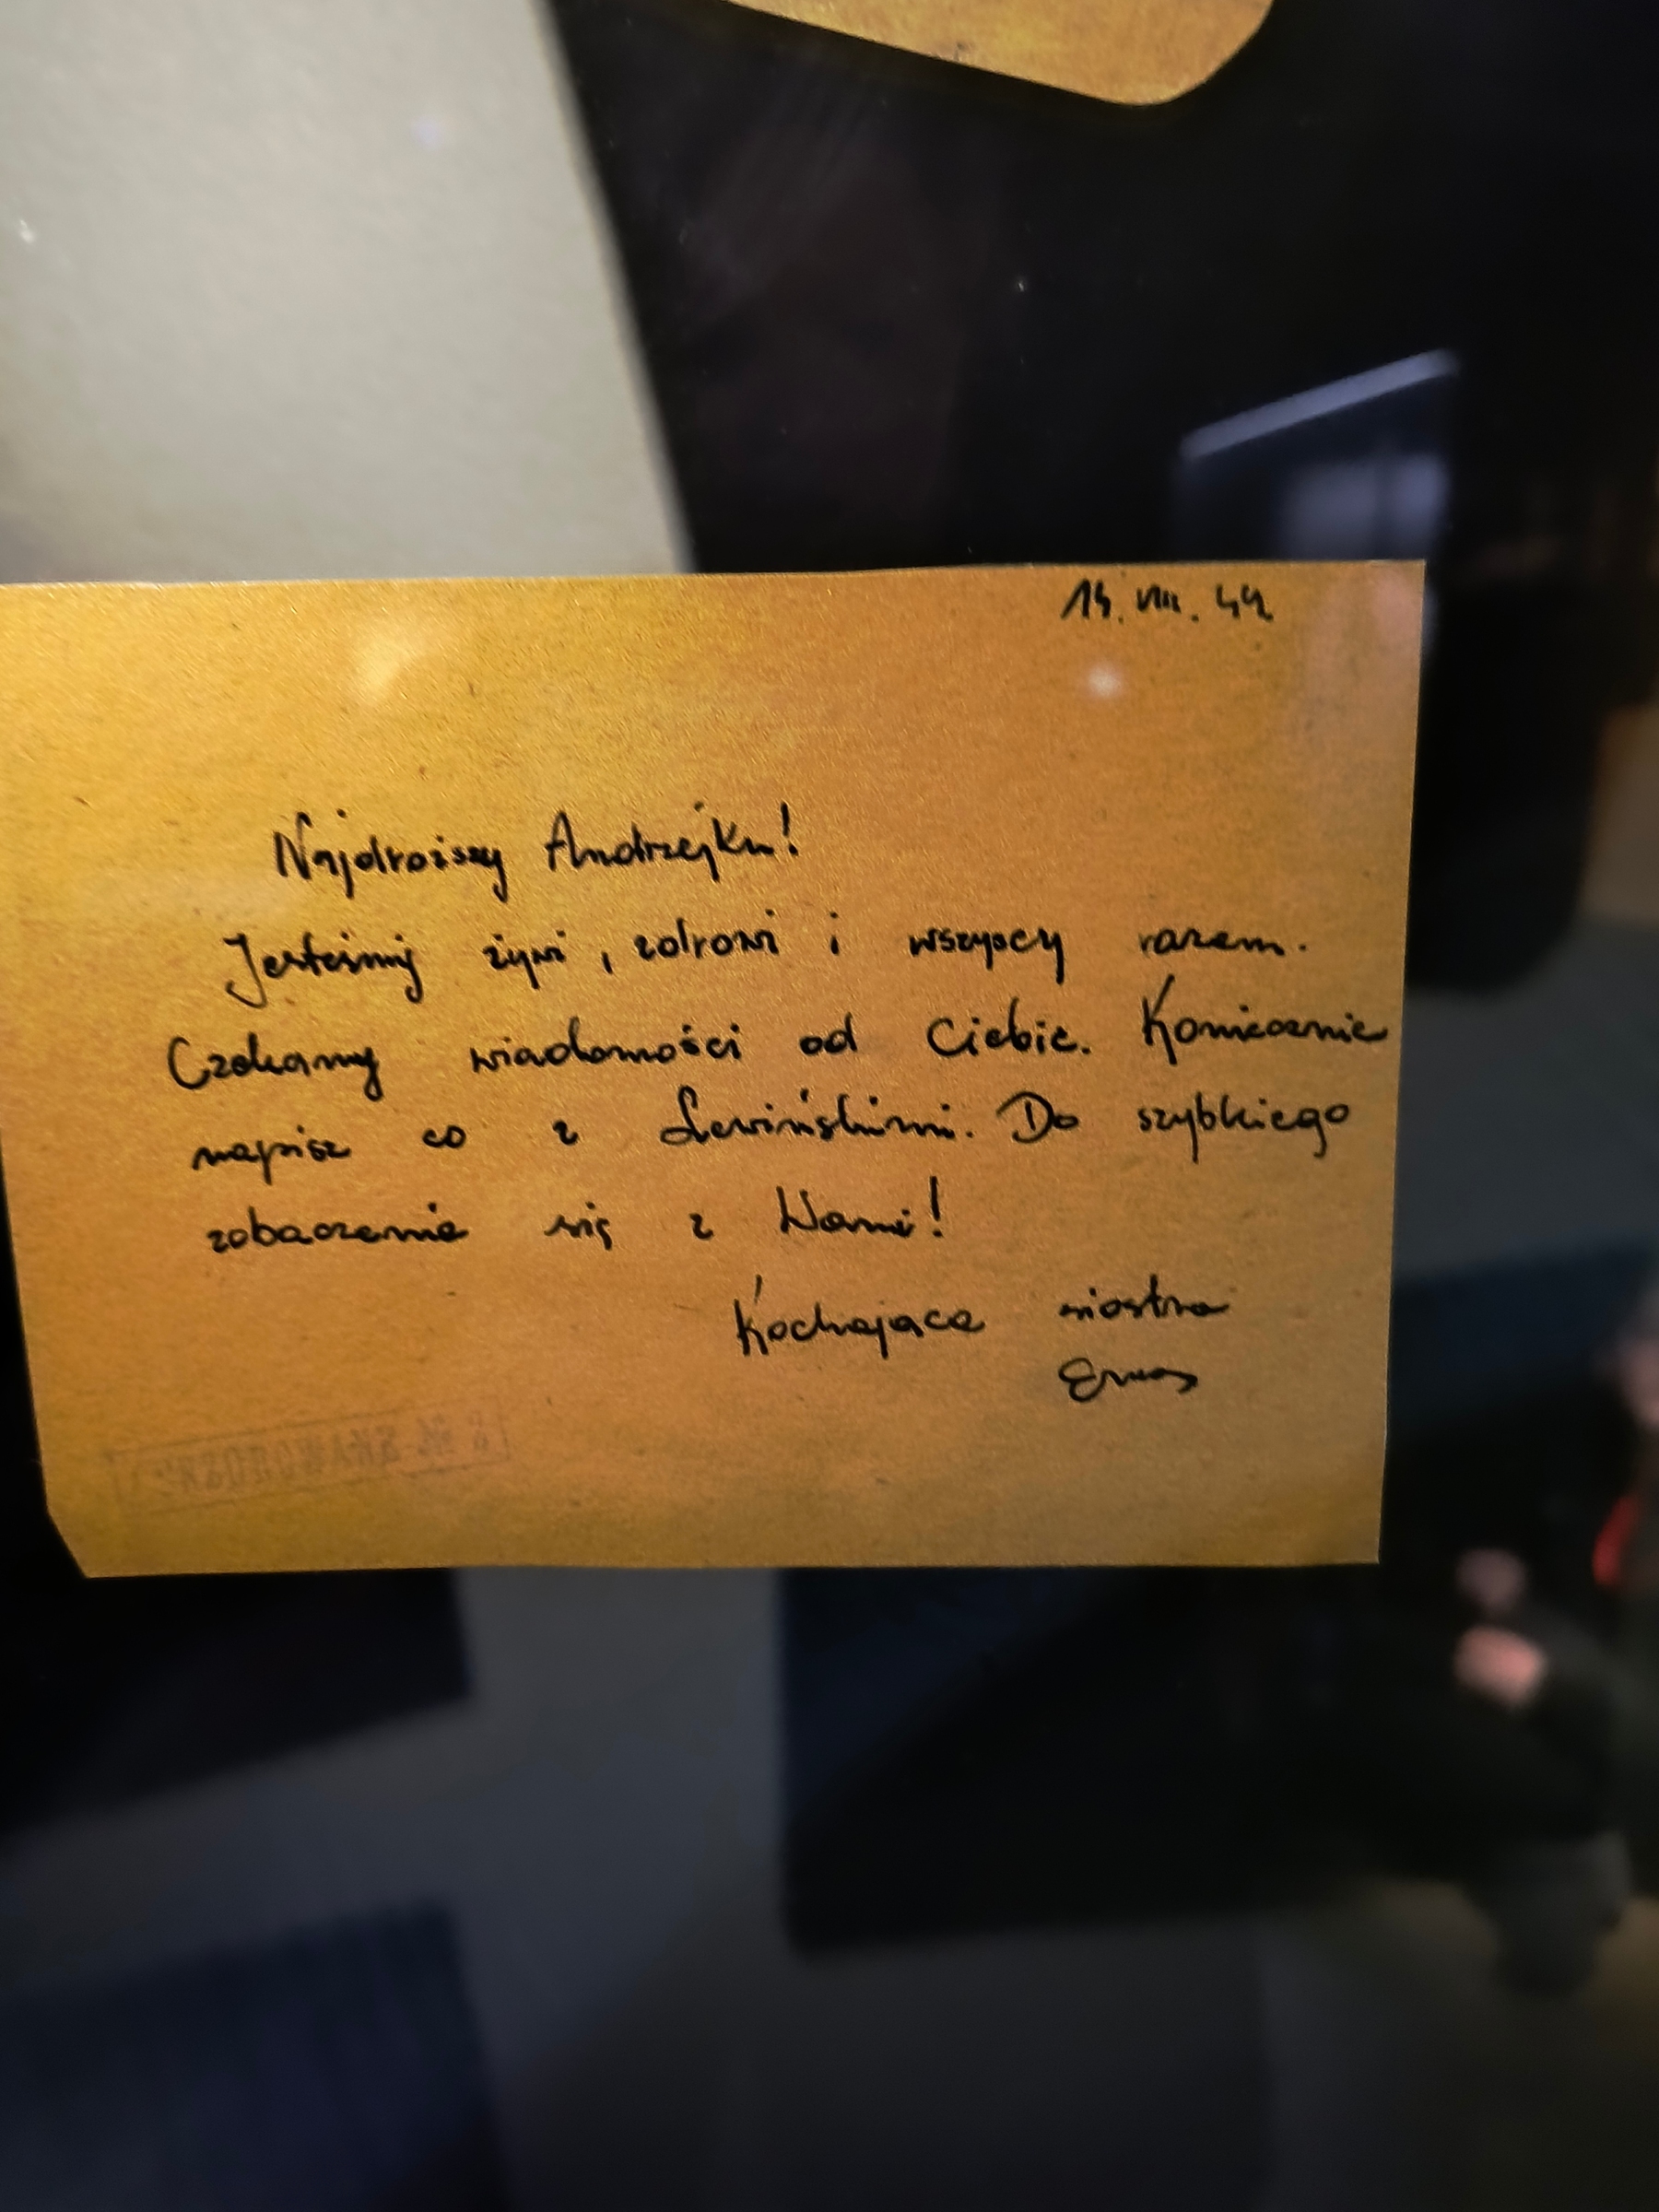 14. VIII. 44
Najdroższy Andrzejku!
Jesteśmy żywi, zdrowi i wszyscy razem.
Czekamy wiadomości od Ciebie. Koniecznie
napisz co z Lewińskimi. Do szybkiego
zobaczenia się z Wami!
Kochająca siostra